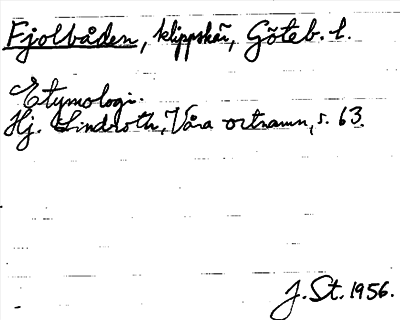 Fjolbåden, klippskär, Göteb. l.
Etymologi.
Hj. Lindroth, Våra ortnamn, s. 63.
J. St. 1956.